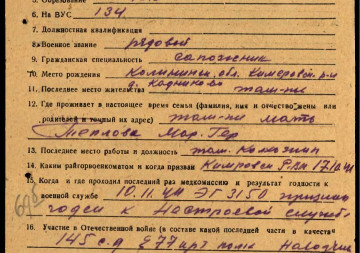 6. На ВУС 134
7. Должностная квалификация
8. Военное звание рядовой
9. Гражданская специальность сапожник
10. Место рождения Калининск. обл. Кимровск. р-н
д. Кадниково
11. Последнее место жительства там-же
12. Где проживает в настоящее время семья (фамилия, имя и отчество жены или
родителей и точный их адрес) там-же мать
Теплова Мар.
13. Последнее место работы и должность там. Колхозник
14. Каким райгорвоенкоматом и когда призван Кимровск РВК
15. Когда и где проходил последний раз медкомиссию и результат годности к
военной службе 10.11.44 ЭГ 3150 признан
годен к строевой служб
16. Участие в Отечественной войне (в составе какой последней части и в качестве
145 с.д 277 арт полк Наводчик